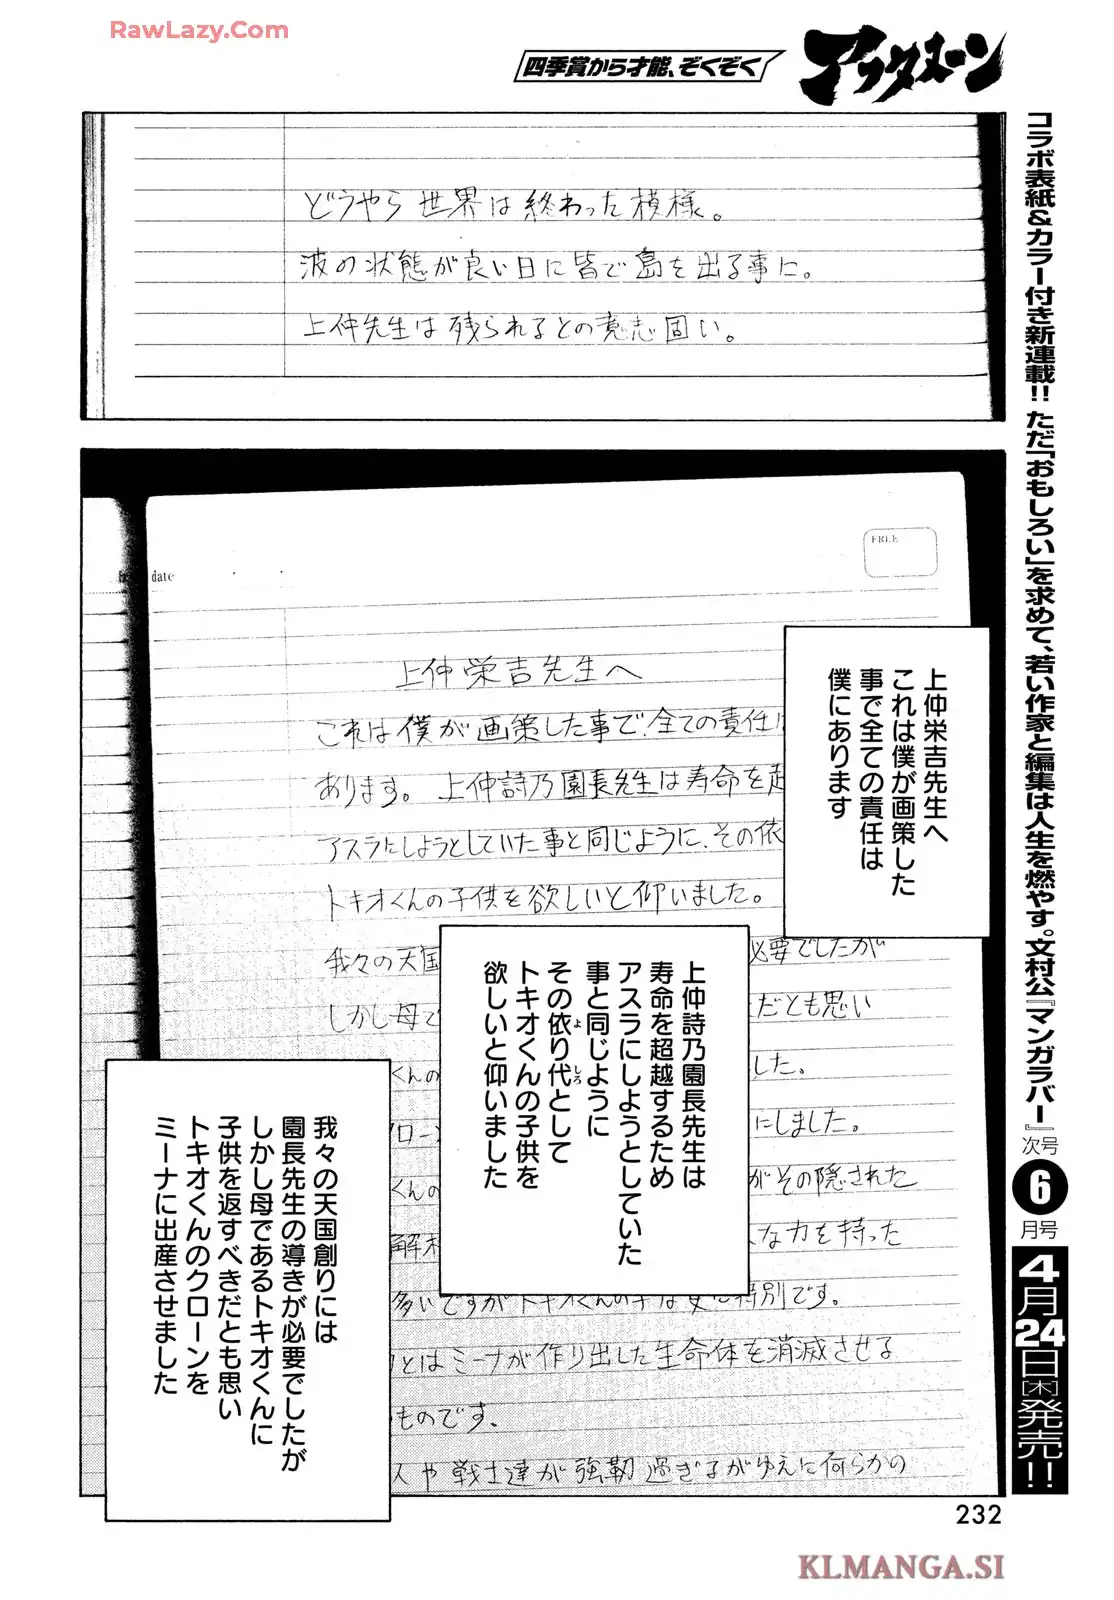 RawLazy.Com
四季賞から才能、ぞくぞく
アフタヌーン
コラボ表紙&カラー付き新連載!! ただ「おもしろい」を求めて、若い作家と編集は人生を燃やす。文村公『マンガラバー』
次号6月号
4月24日[木]発売!!
どうやら世界は終わった模様。
波の状態が良い日に皆で島を出る事に。
上仲先生は残られるとの意志固い。
date
FREE
上仲栄吉先生へ
これは僕が画策した事で全ての責任は
あります。上仲詩乃園長先生は寿命を超
アスラにしようとしていた事と同じように、その依
トキオくんの子供を欲しいと仰いました。
我々の天国
必要でしたが
しかし母で
だとも思い
くんの
した。
ローン
にしました。
くんの
がその隠された
解
な力を持った
多いですがトキオくんの子は更に特別です。
とはミーナが作り出した生命体を消滅させる
ものです。
人や戦士達が強靭過ぎるがゆえに何らかの
上仲栄吉先生へ
これは僕が画策した
事で全ての責任は
僕にあります
上仲詩乃園長先生は
寿命を超越するため
アスラにしようとしていた
事と同じように
その依り代として
よ しろ
トキオくんの子供を
欲しいと仰いました
我々の天国創りには
園長先生の導きが必要でしたが
しかし母であるトキオくんに
子供を返すべきだとも思い
トキオくんのクローンを
ミーナに出産させました
232
KLMANGA.SI